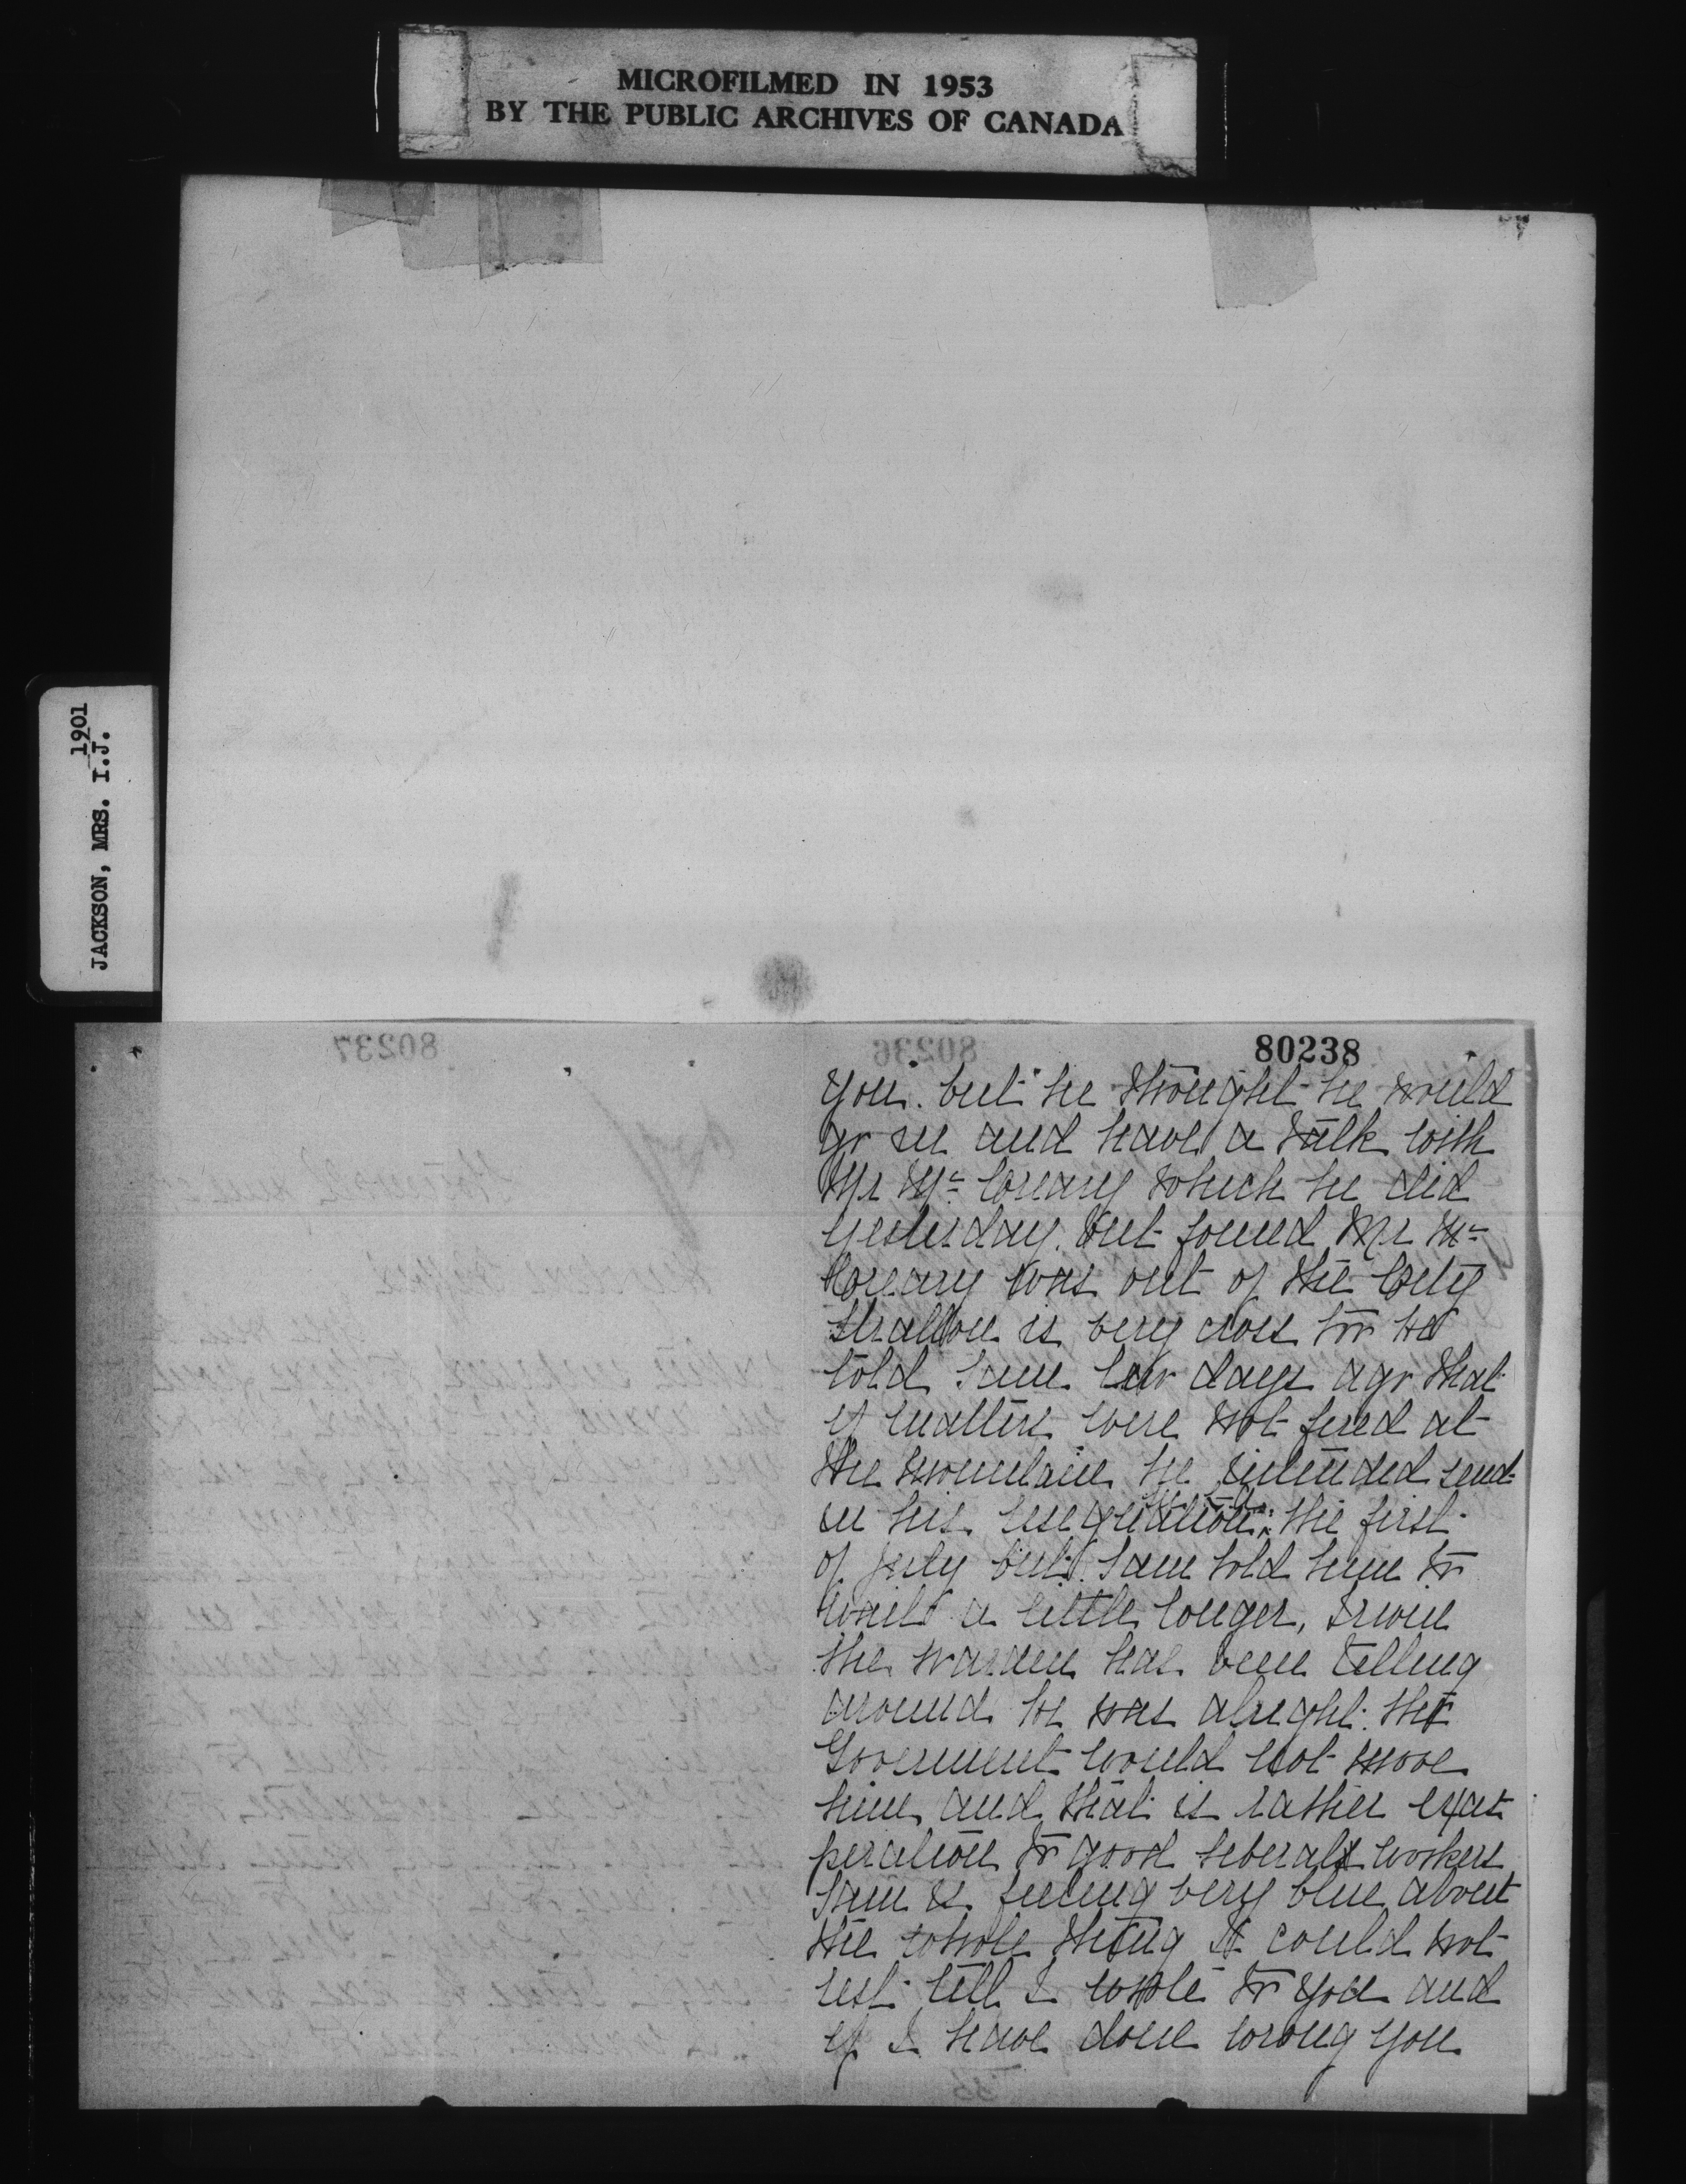 MICROFILMED IN 1953
BY THE PUBLIC ARCHIVES OF CANADA
JACKSON, MRS. I.J.
1901
80237
80236
80238
you. but he thought he would
go in and have a talk with
Mr Mc Creary which he did
yesterday. but found Mr Mc
Creary was out of the City
is very cross too he
told Sam few days ago that
if matters were not fixed at
the he intended send
in his resignation: the first
of July but Sam told him to
wait a little longer, Irwin
the warden has been telling
around he was alright. the
Goverment would not move
him and that is rather exas
peration to good liberals workers
Sam is feeling very blue about
the whole thing I could not
rest till I wrote to you and
if I have done wrong you